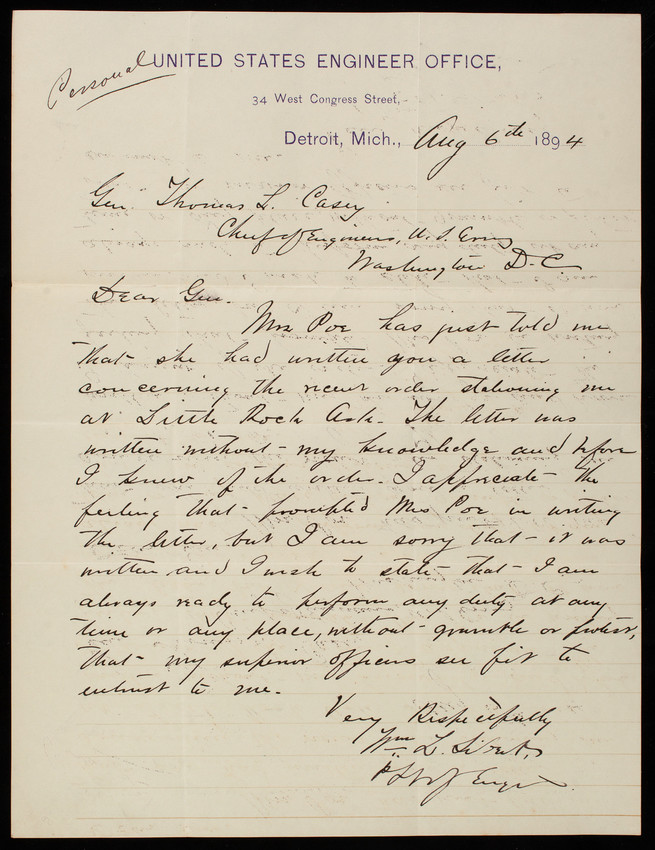 Personal
UNITED STATES ENGINEER OFFICE,
34 West Congress Street,
Detroit, Mich., Aug 6th 1894
Gen Thomas L. Casey
Chief of Engineers, U.S. Army
Washington D.C.
Dear Gen.
Mrs Poe has just told me
that she had written you a letter
concerning the recent order stationing me
at Little Rock Ark. The letter was
written without my knowledge and before
I knew of the order. I appreciate the
feeling that prompted Mrs Poe in writing
the letter, but I am sorry that it was
written and I wish to state that I am
always ready to perform any duty at any
time or any place, without grumble or protest,
that my superior officers see fit to
entrust to me.
Very Respectfully
Wm L. Sibert,
Engrs.